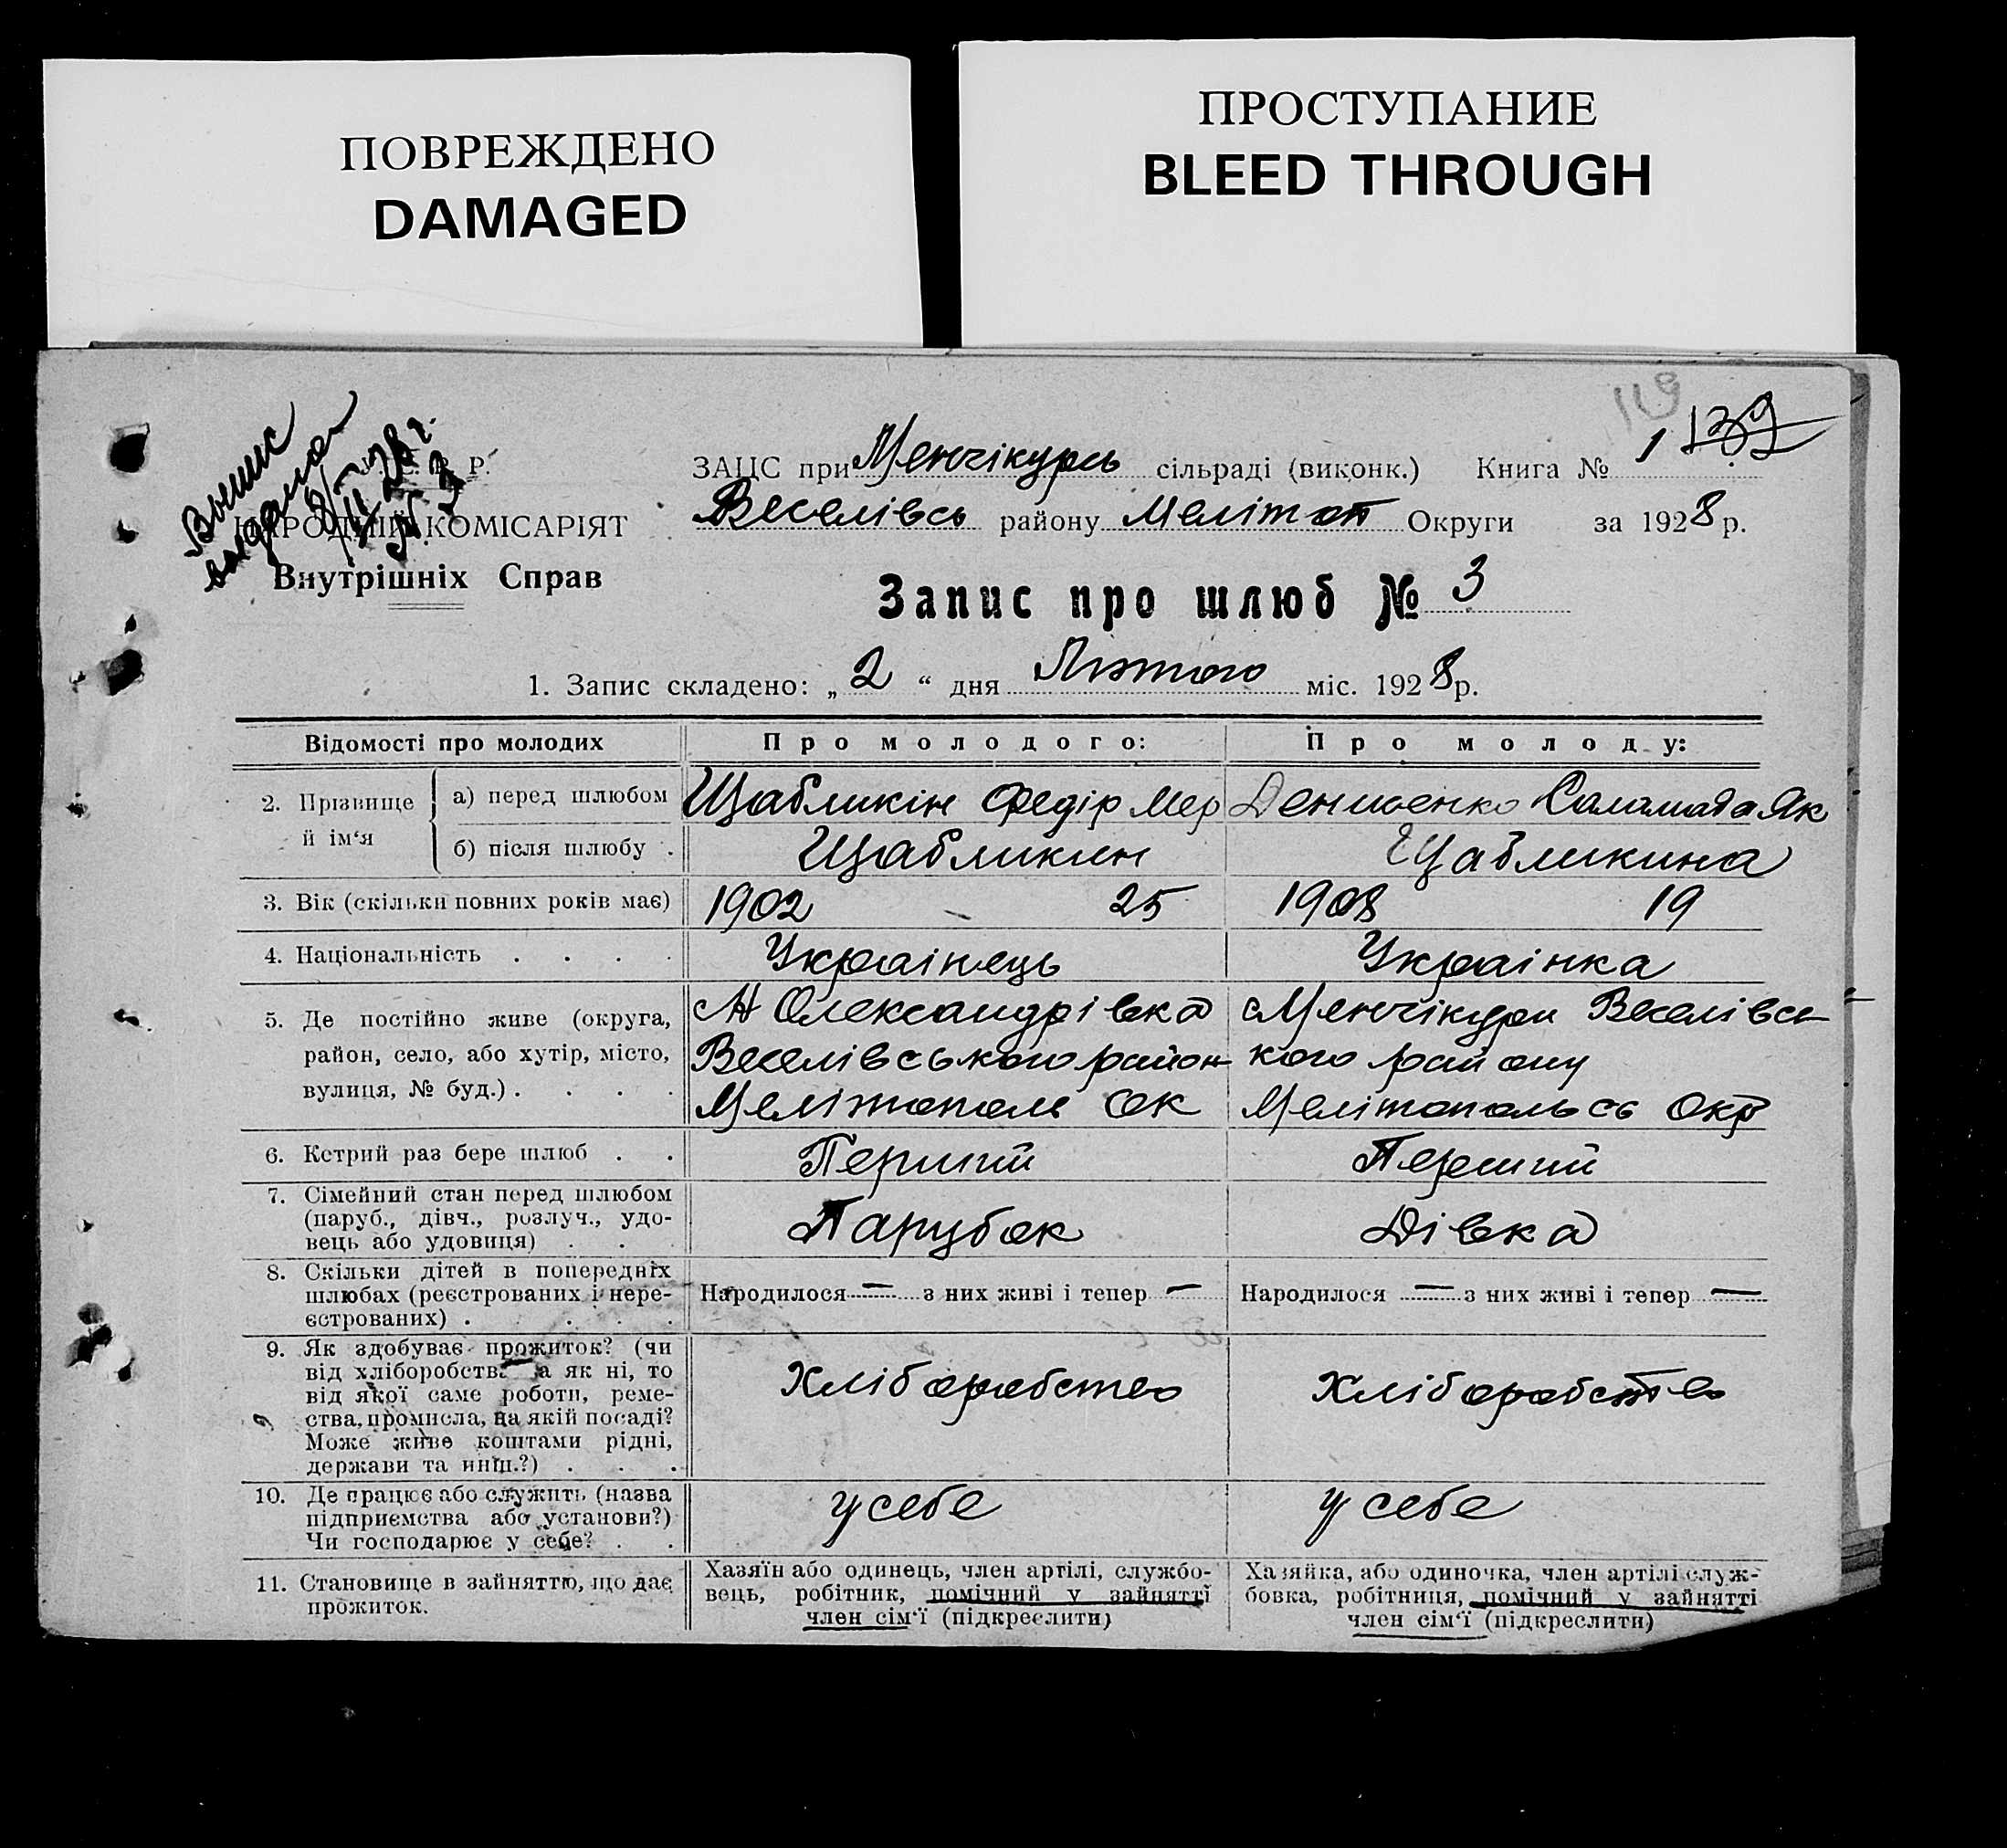 ПОВРЕЖДЕНО
DAMAGED
ПРОСТУПАНИЕ
BLEED THROUGH
119
1 139
Выпис
выдана
2/II 28 г.
№ 3
Р.
НАРОДНІЙ КОМІСАРІЯТ
Внутрішніх Справ
ЗАЦС при Менчікурсь сільраді (виконк.) Книга №
Веселівсь району Мелітоп Округи за 1928 р.
Запис про шлюб № 3
1. Запис складено: „ 2 “ дня Лютого міс. 1928 р.
Відомості про молодих Про молодого: Про молоду:
2. Прізвище й ім‘я
а) перед шлюбом Щабликін Федір Мер Денисенко Саламада Як
б) після шлюбу . Щабликин Щабликина
3. Вік (скільки повних років має) 1902 25 1908 19
4. Національність . . . . Украінець Украінка
5. Де постійно живе (округа,
район, село, або хутір, місто,
вулиця, № буд.) . . . .
Н Олександрівка
Веселівського район
Мелітополь ок
Менчікури Веселівсь
кого району
Мелітопольсь окр
6. Котрий раз бере шлюб . . Перший Перший
7. Сімейний стан перед шлюбом
(паруб., дівч., розлуч., удо-
вець або удовиця) . .
Парубок Дівка
8. Скільки дітей в попередніх
шлюбах (реєстрованих і нере-
єстрованих) . . . . .
Народилося — з них живі і тепер — Народилося — з них живі і тепер —
9. Як здобуває прожиток? (чи
від хліборобства а як ні, то
від якої саме роботи, реме-
ства, промисла, на якій посаді?
Може живе коштами рідні,
держави та инш.?) . . .
Хліборобство Хліборобство
10. Де працює або служить (назва
підприємства або установи?)
Чи господарює у себе? . .
у себе у себе
11. Становище в зайняттю, що дає
прожиток.
Хазяїн або одинець, член артілі, службо-
вець, робітник, помічний у зайнятті
член сім‘ї (підкреслити)
Хазяйка, або одиночка, член артілі служ-
бовка, робітниця, помічний у зайнятті
член сім‘ї (підкреслити)